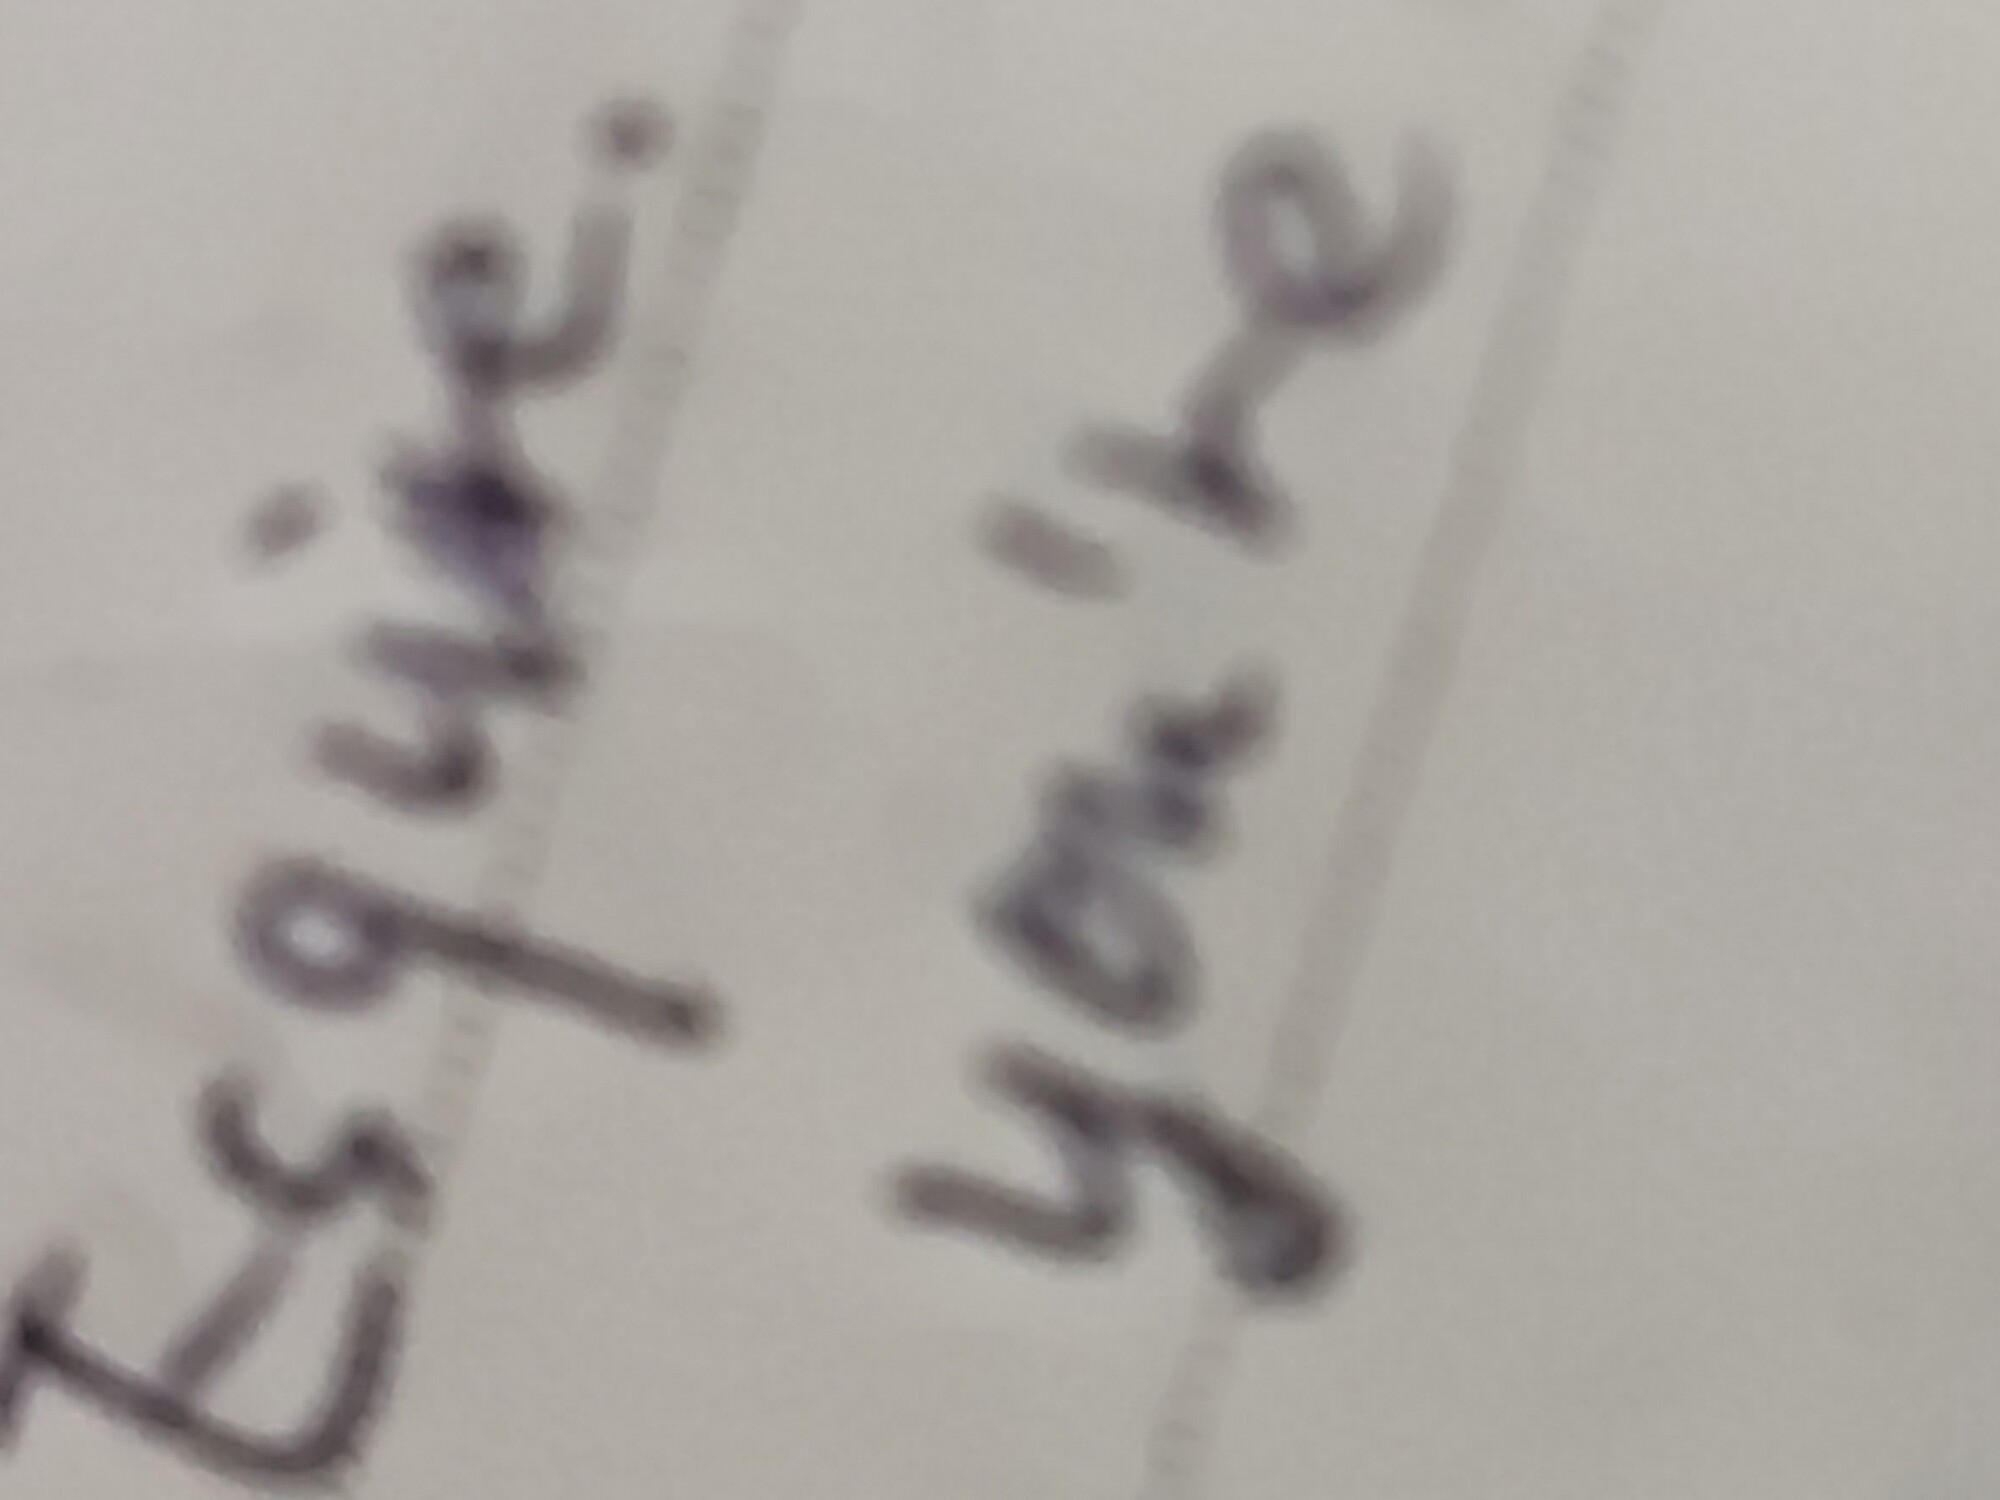 Esquire.
you're